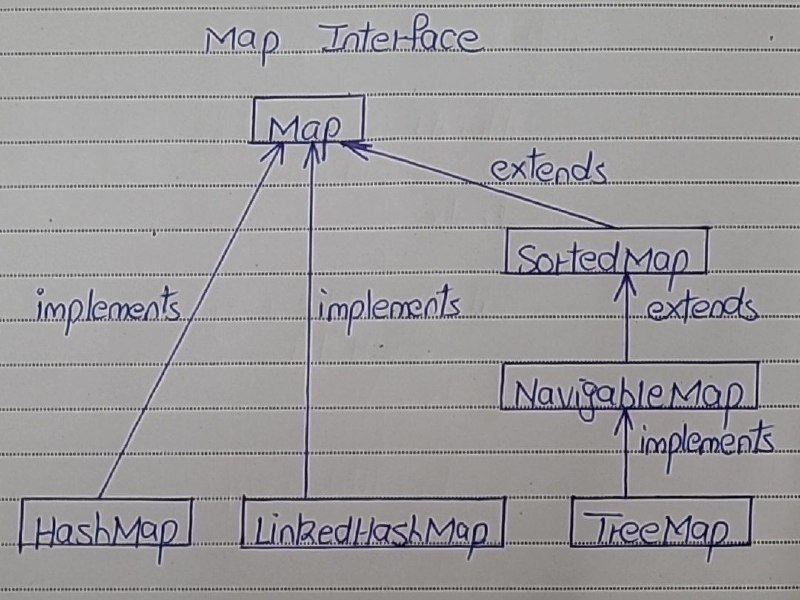 Map Interface
Map
extends
SortedMap
implements implements extends
NavigableMap
implements
HashMap LinkedHashMap TreeMap